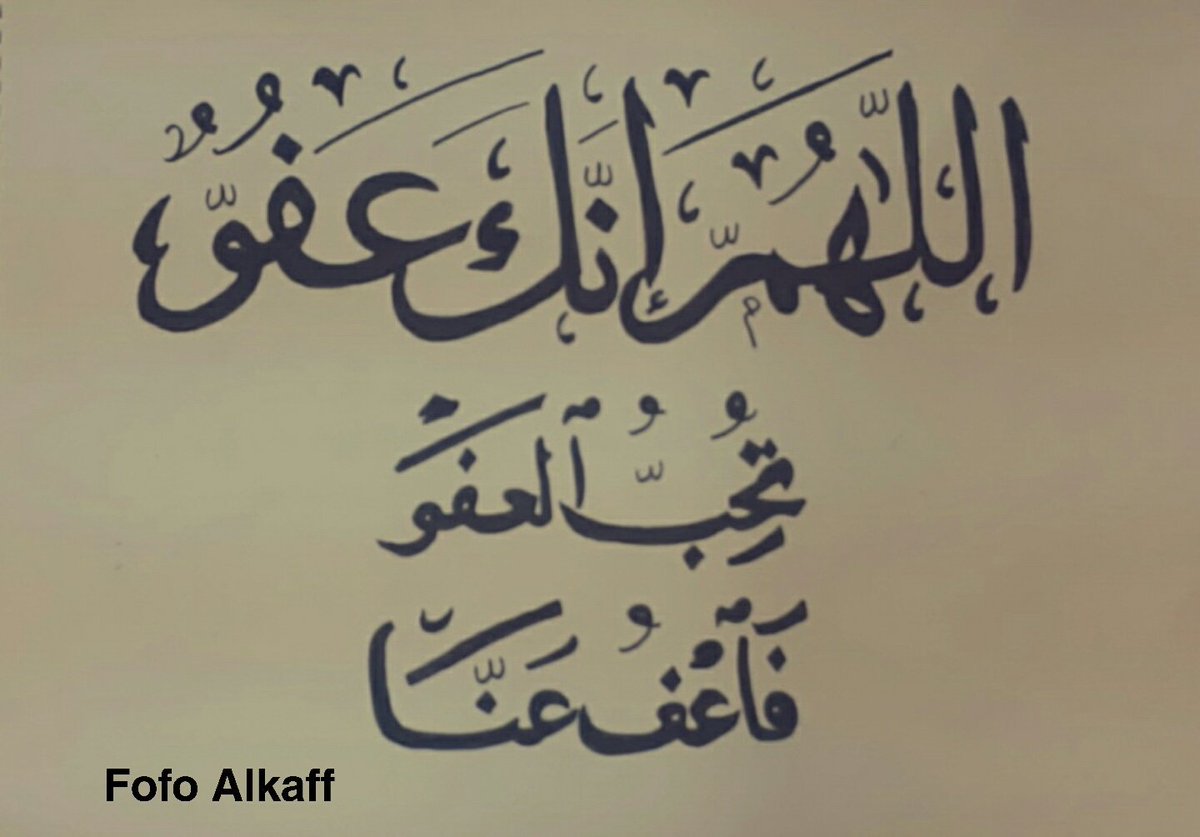 اللّٰهُمَّ إِنَّكَ عَفُوٌّ
تُحِبُّ ٱلْعَفْوَ
فَٱعْفُ عَنَّا
Fofo Alkaff